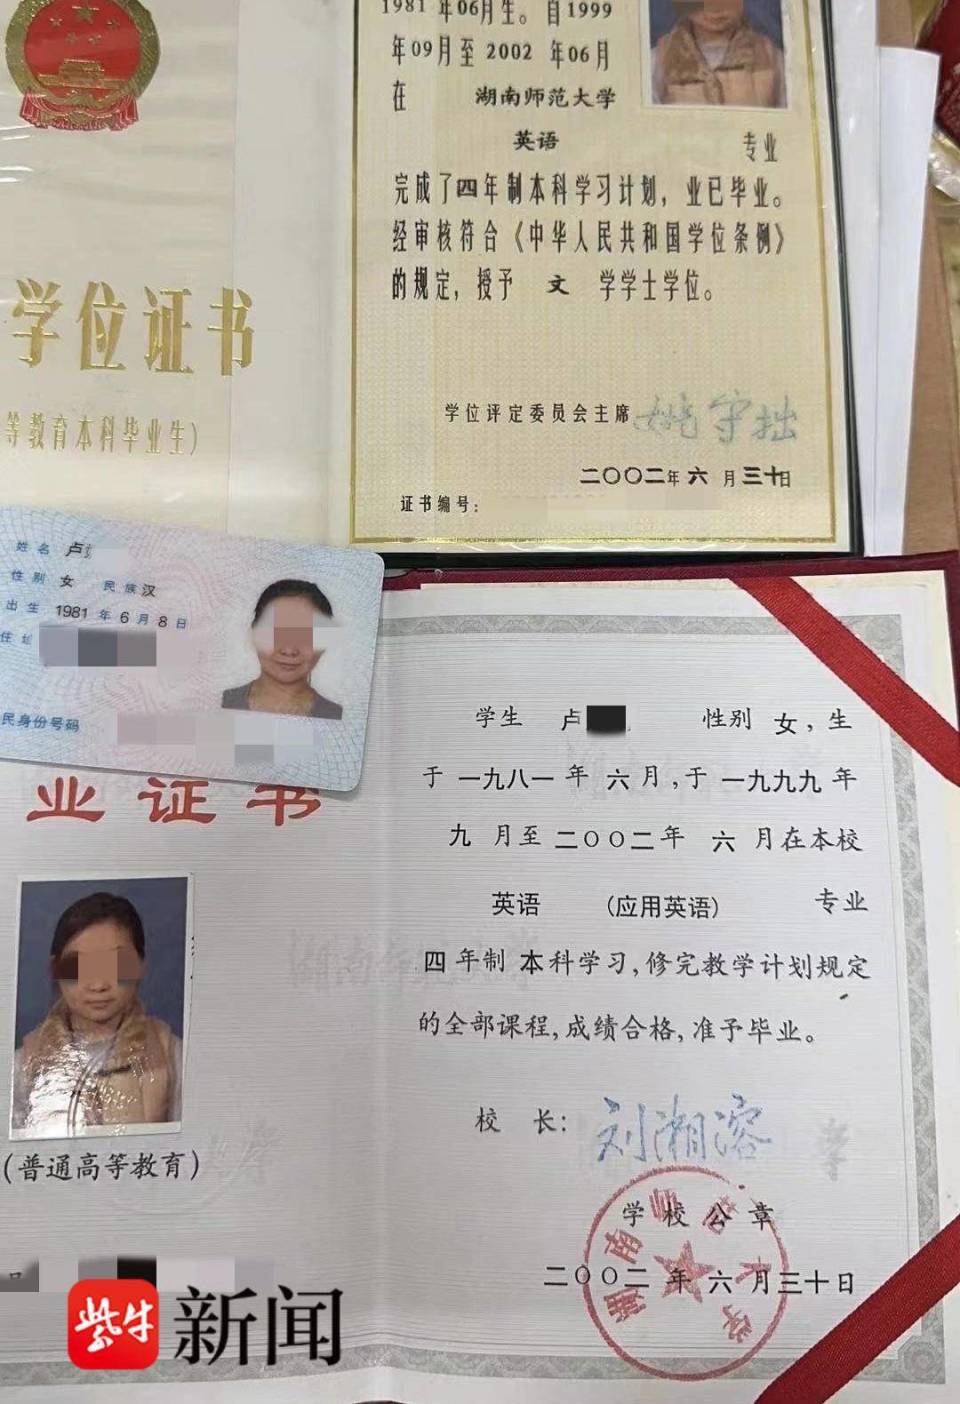 1981 年06月生。自1999
年09月至 2002 年06月
在 湖南师范大学
英语 专业
完成了四年制本科学习计划，业已毕业。
经审核符合《中华人民共和国学位条例》
的规定，授予 文 学学士学位。
学位评定委员会主席 姚守拙
二〇〇二年 六 月 三十日
证书编号：
学位证书
等教育本科毕业生）
姓名 卢
性别 女 民族 汉
出生 1981 年 6 月 8 日
住址
民身份号码
业证书
（普通高等教育）
学生 卢 性别 女，生
于 一九八一 年 六 月，于 一九九九 年
九 月至 二〇〇二 年 六 月在本校
英语 （应用英语） 专业
四 年制 本科学习，修完教学计划规定
的全部课程，成绩合格，准予毕业。
校 长： 刘湘溶
学校公章
湖南师范大学
二〇〇二 年 六 月三十日
紫牛新闻